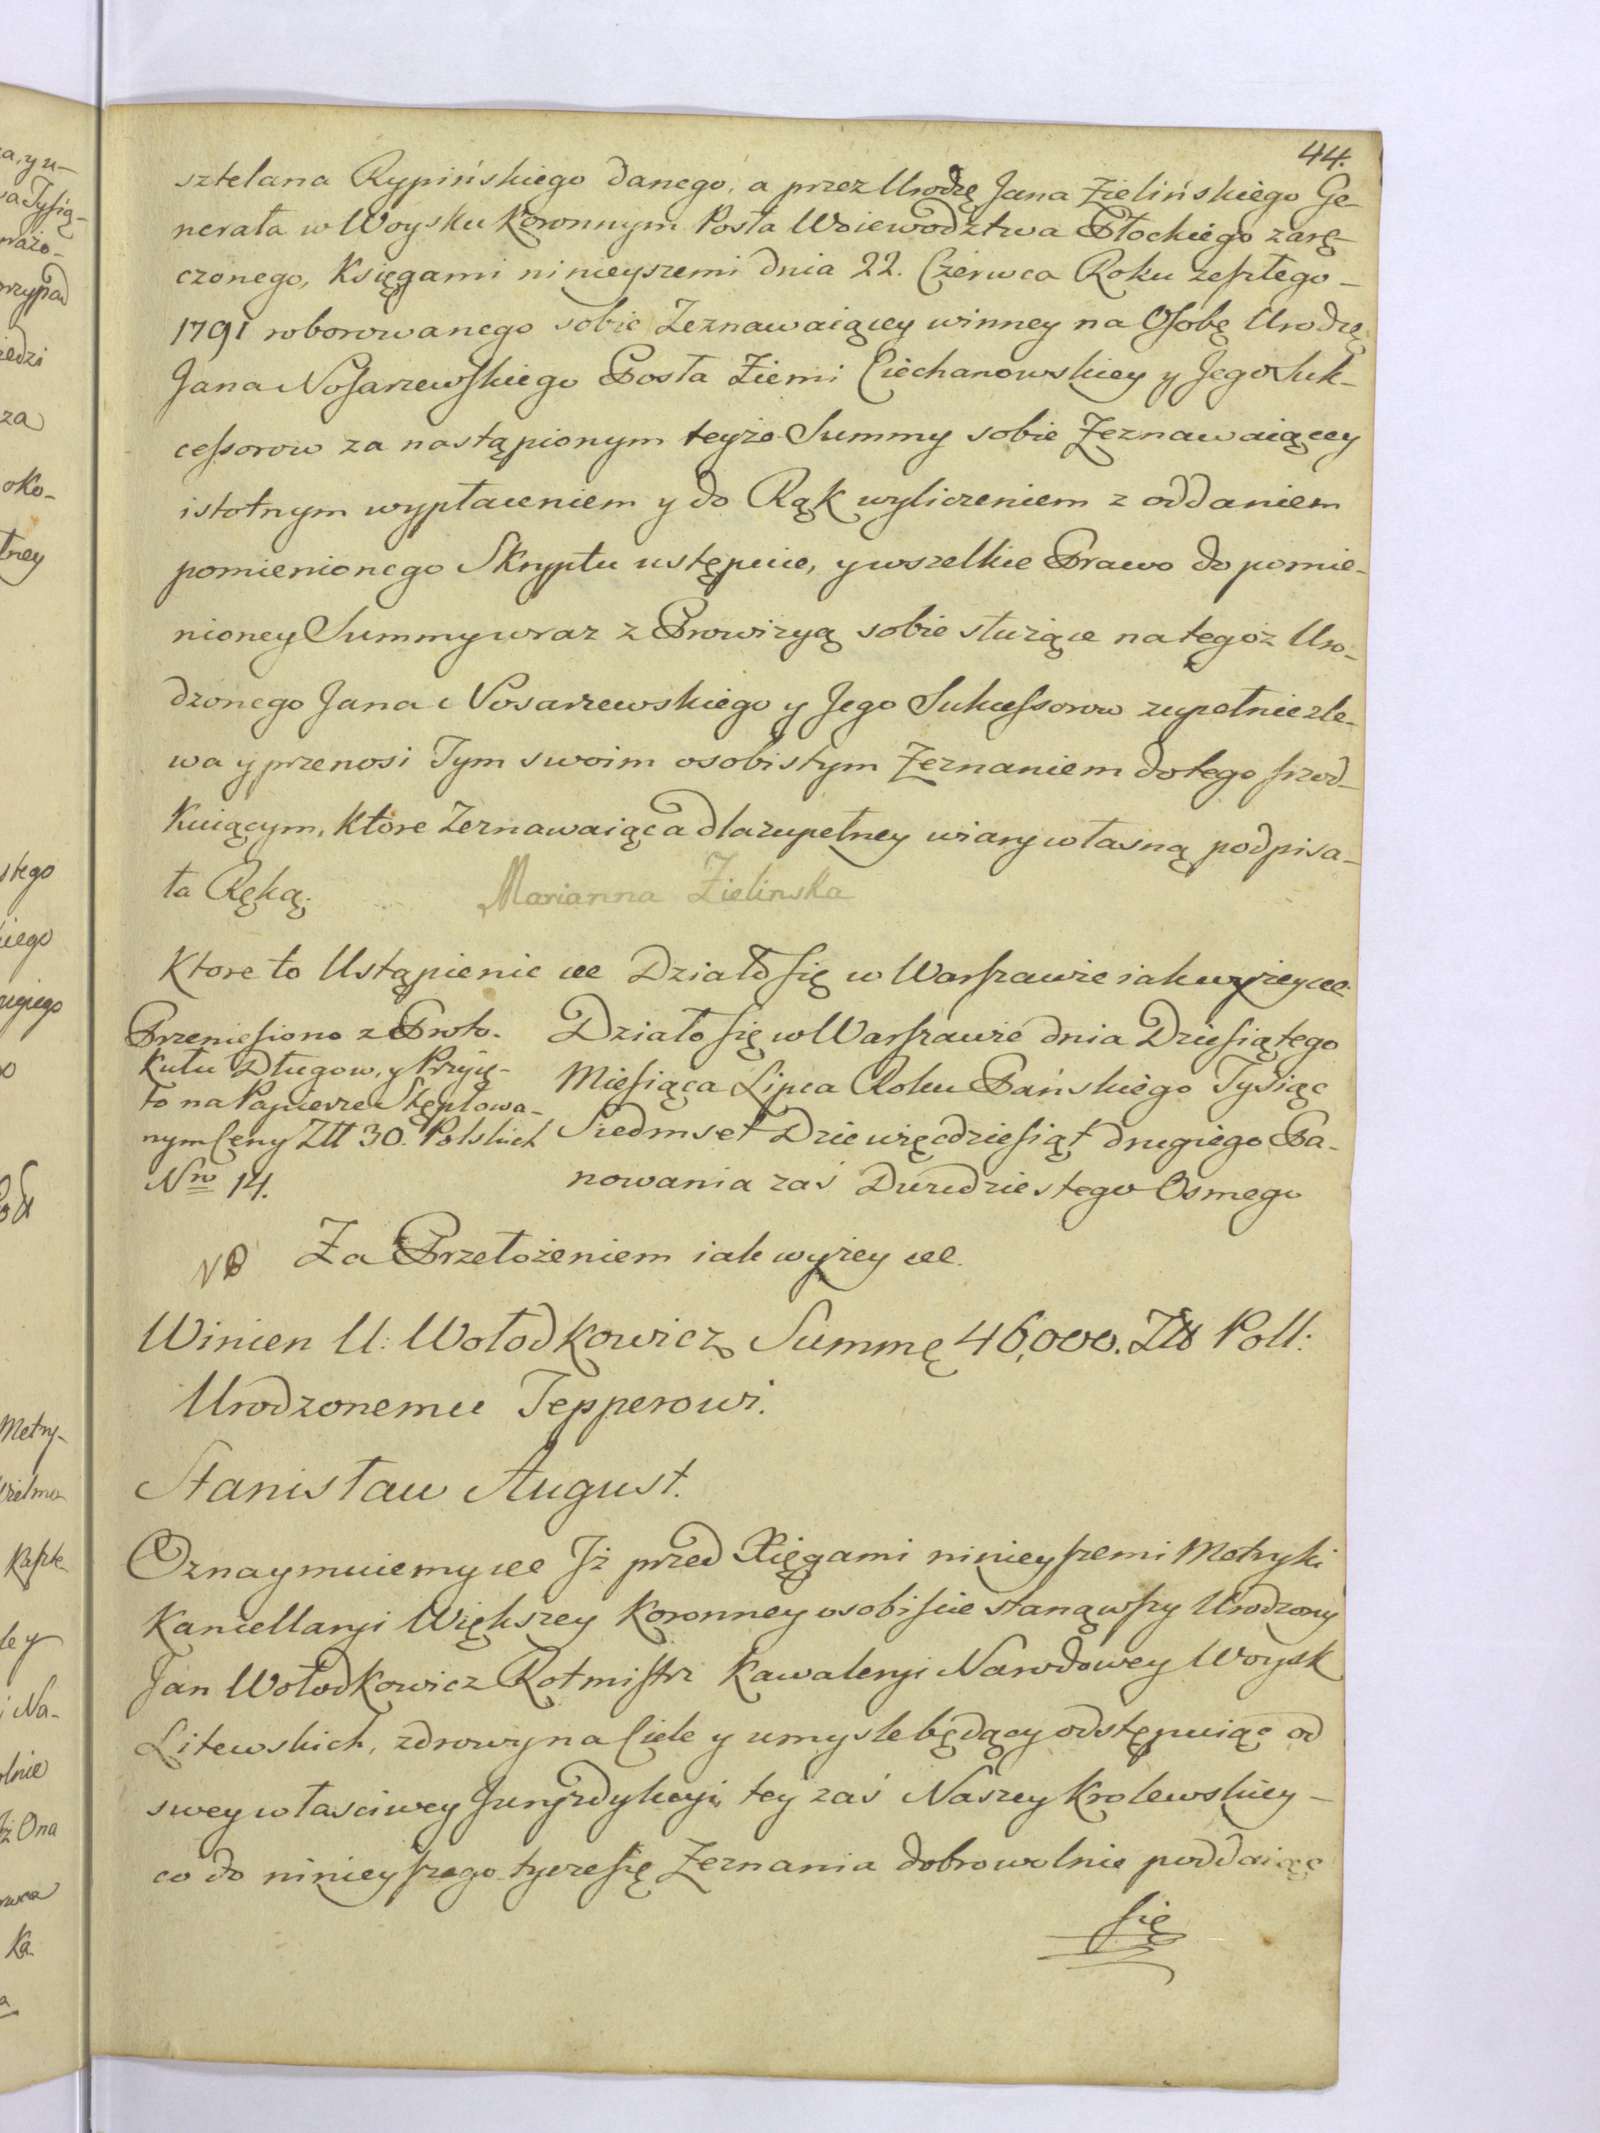 44.
sztelana Rypińskiego danego, a przez Urodzę Jana Zielińskiego Ge-
nerała w Woysku Koronnym Posła Woiewodztwa Płockiego zarę-
czonego, Księgami ninieyszemi dnia 22. Czerwca Roku zeszłego -
1791 roborowanego sobie Zeznawaiącey winney na Osobę Urodzę
Jana Nosarzewskiego Posła Ziemi Ciechanowskiey y Jego Suk-
cessorow za nastąpionym teyże Summy sobie Zeznawaiącey
istotnym wypłaceniem y do Rąk wyliczeniem z oddaniem
pomienionego Skryptu ustępuie, y wszelkie Prawo do pomie-
nioney Summy wraz z Prowizyą sobie służące na tegoż Uro-
dzonego Jana Nosarzewskiego y Jego Sukcessorow zupełnie zle-
wa y przenosi Tym swoim osobistym Zeznaniem do tego szrod-
kuiącym, ktore Zeznawaiąca dla zupełney wiary własną podpisa-
ła Ręką. Marianna Zielinska
Ktore to Ustąpienie &c Działo się w Warszawie iak wyżey &c.
Przeniesiono z Proto-
kułu Długow, y Przyię-
to na Papierze Stęplowa-
nym Ceny Złł 30. Polskich
Nro 14.
Działo się w Warszawie dnia Dziesiątego
Miesiąca Lipca Roku Pańskiego Tysiąc
Siedmset Dziewięćdziesiąt drugiego Pa-
nowania zaś Dwudziestego Osmego
NB Za Przełożeniem iak wyżey &c.
Winien U: Wołodkowicz Summę 46,000. Złł Poll:
Urodzonemu Tepperowi.
Stanisław August.
Oznaymuiemy &c Jż przed Xięgami ninieyszemi Metryki
Kancellaryi Większey Koronney osobiście stanąwszy Urodzony
Jan Wołodkowicz Rotmistrz Kawaleryi Narodowey Woysk
Litewskich, zdrowy na Ciele y umysle będący odstępuiąc od
swey własciwey Juryzdykcyi, tey zaś Naszey Krolewskiey -
co do ninieyszego tyczesię Zeznania dobrowolnie poddaiąc
się